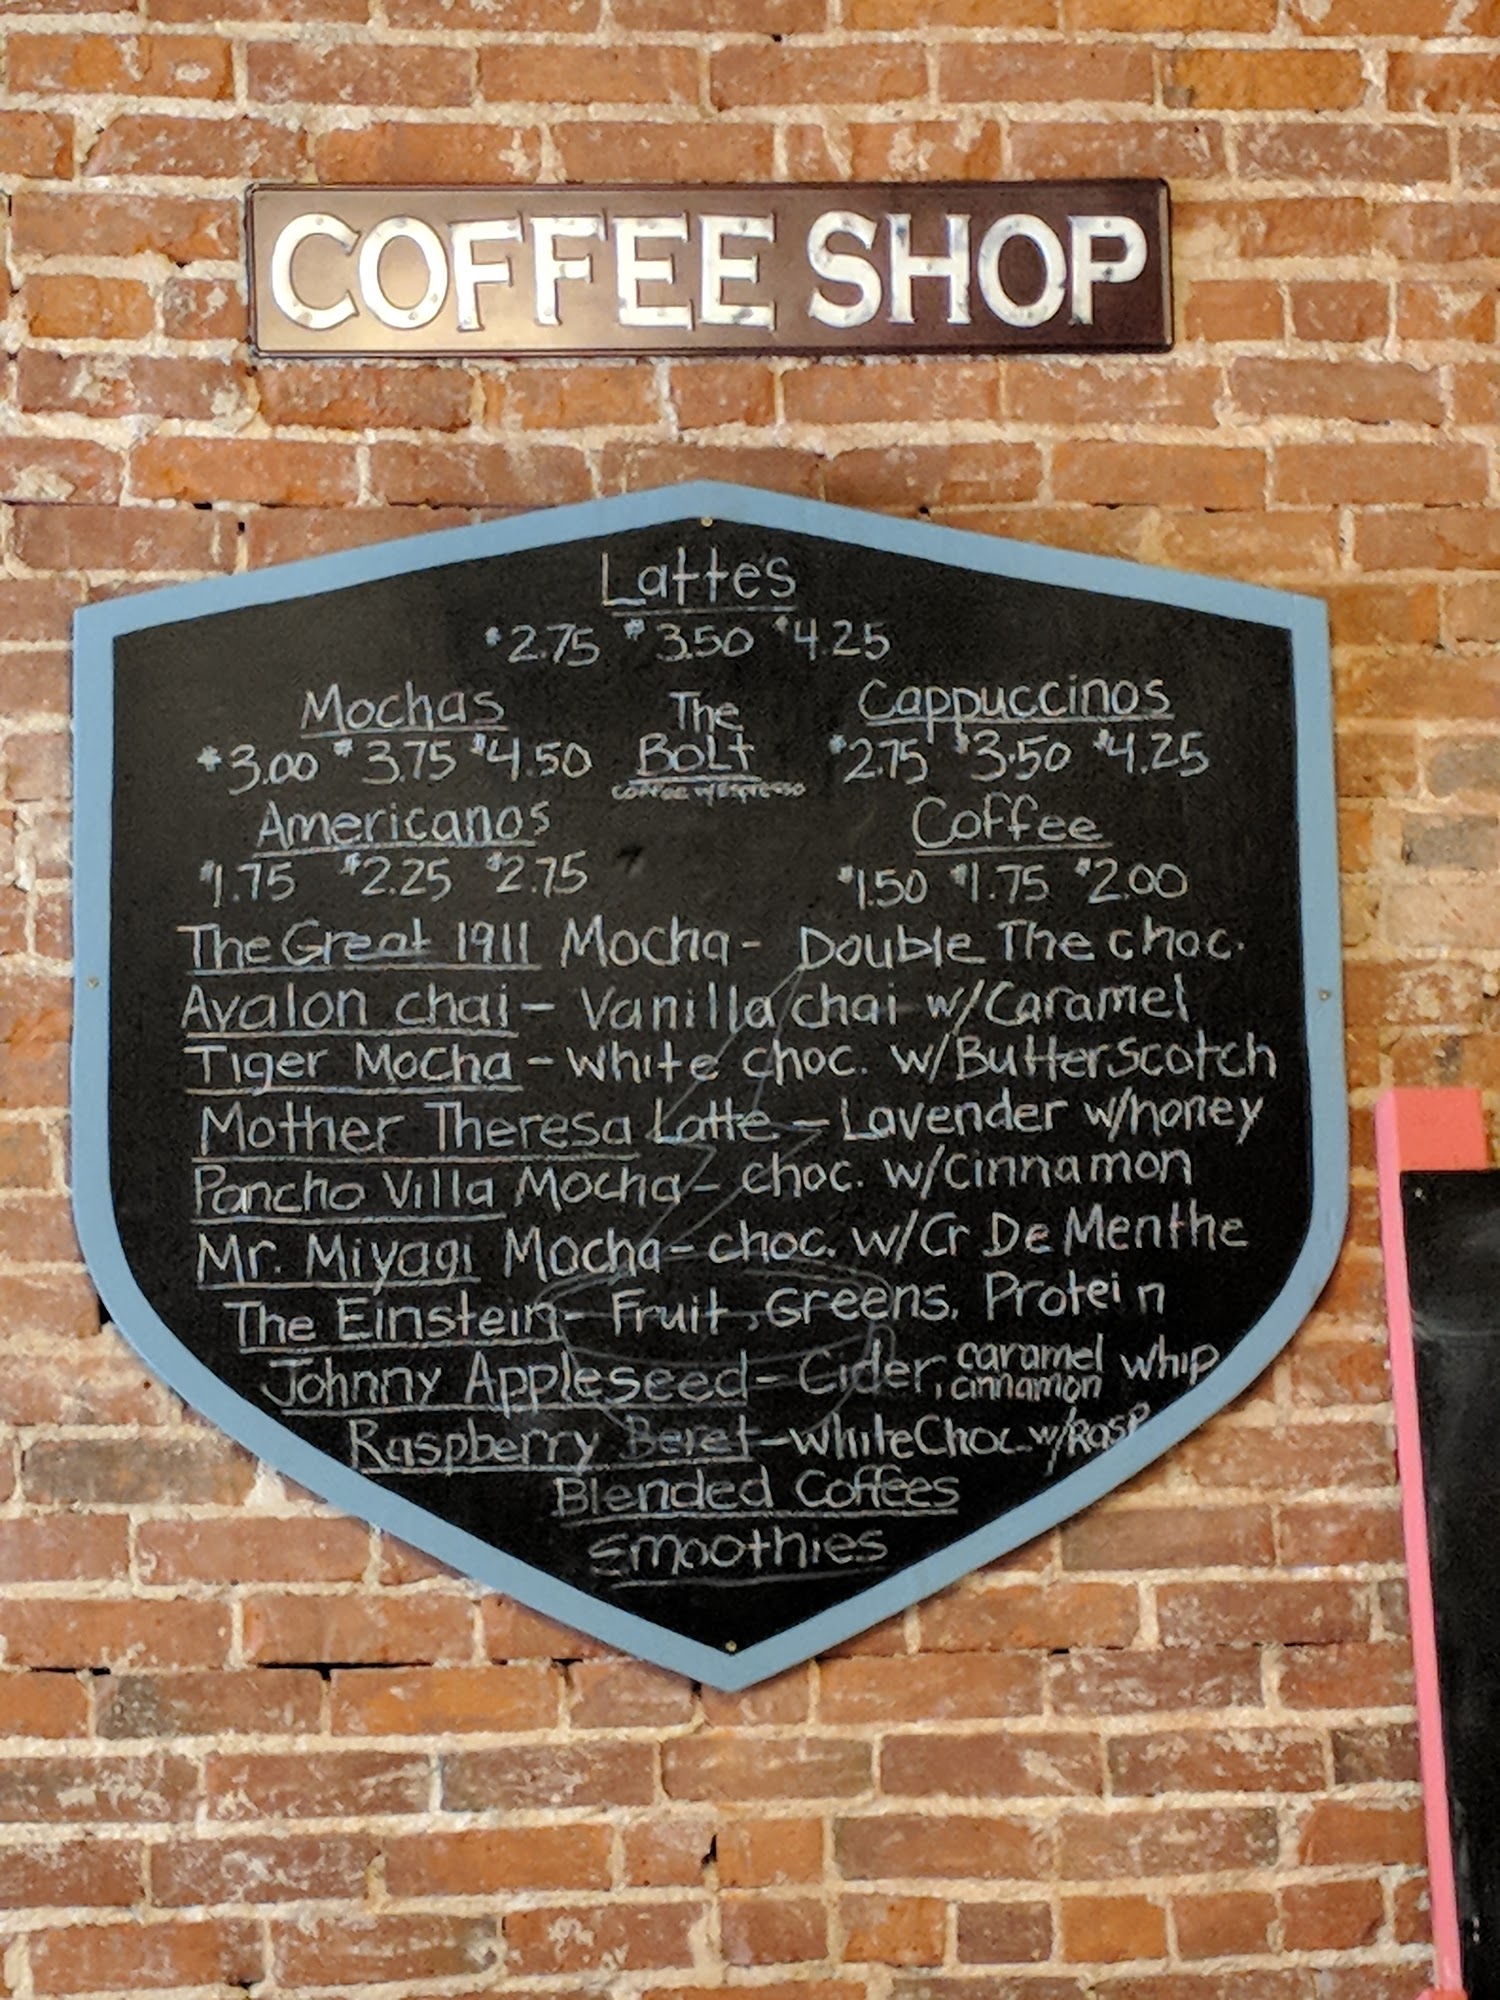 COFFEE SHOP
Latte's
$2.75 $3.50 $4.25
Mochas
$3.00 $3.75 $4.50
The
Bolt
coffee w/Espresso
Cappuccinos
$2.75 $3.50 $4.25
Americanos
$1.75 $2.25 $2.75
Coffee
$1.50 $1.75 $2.00
The Great 1911 Mocha- Double The choc.
Avalon chai- Vanilla chai w/Caramel
Tiger Mocha - white choc. w/ButterScotch
Mother Theresa Latte - Lavender w/honey
Pancho Villa Mocha- choc. w/cinnamon
Mr. Miyagi Mocha- choc. w/Cr De Menthe
The Einstein- Fruit, Greens, Protein
Johnny Appleseed- Cider, caramel cinnamon whip
Raspberry Beret-white Choc. w/Rasp
Blended Coffees
Smoothies